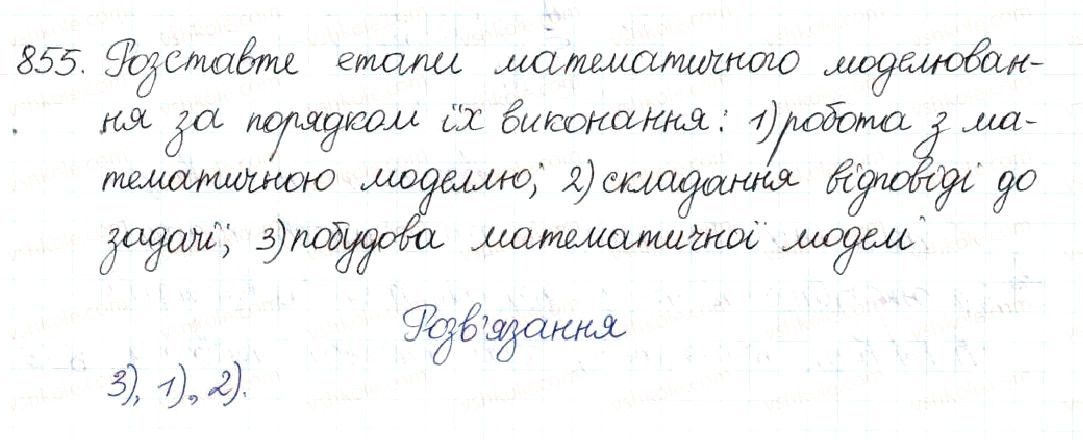 855. Розставте етапи математичного моделюван-
ня за порядком їх виконання: 1) робота з ма-
тематичною моделлю; 2) складання відповіді до
задачі; 3) побудова математичної моделі
Розв'язання
3), 1), 2).